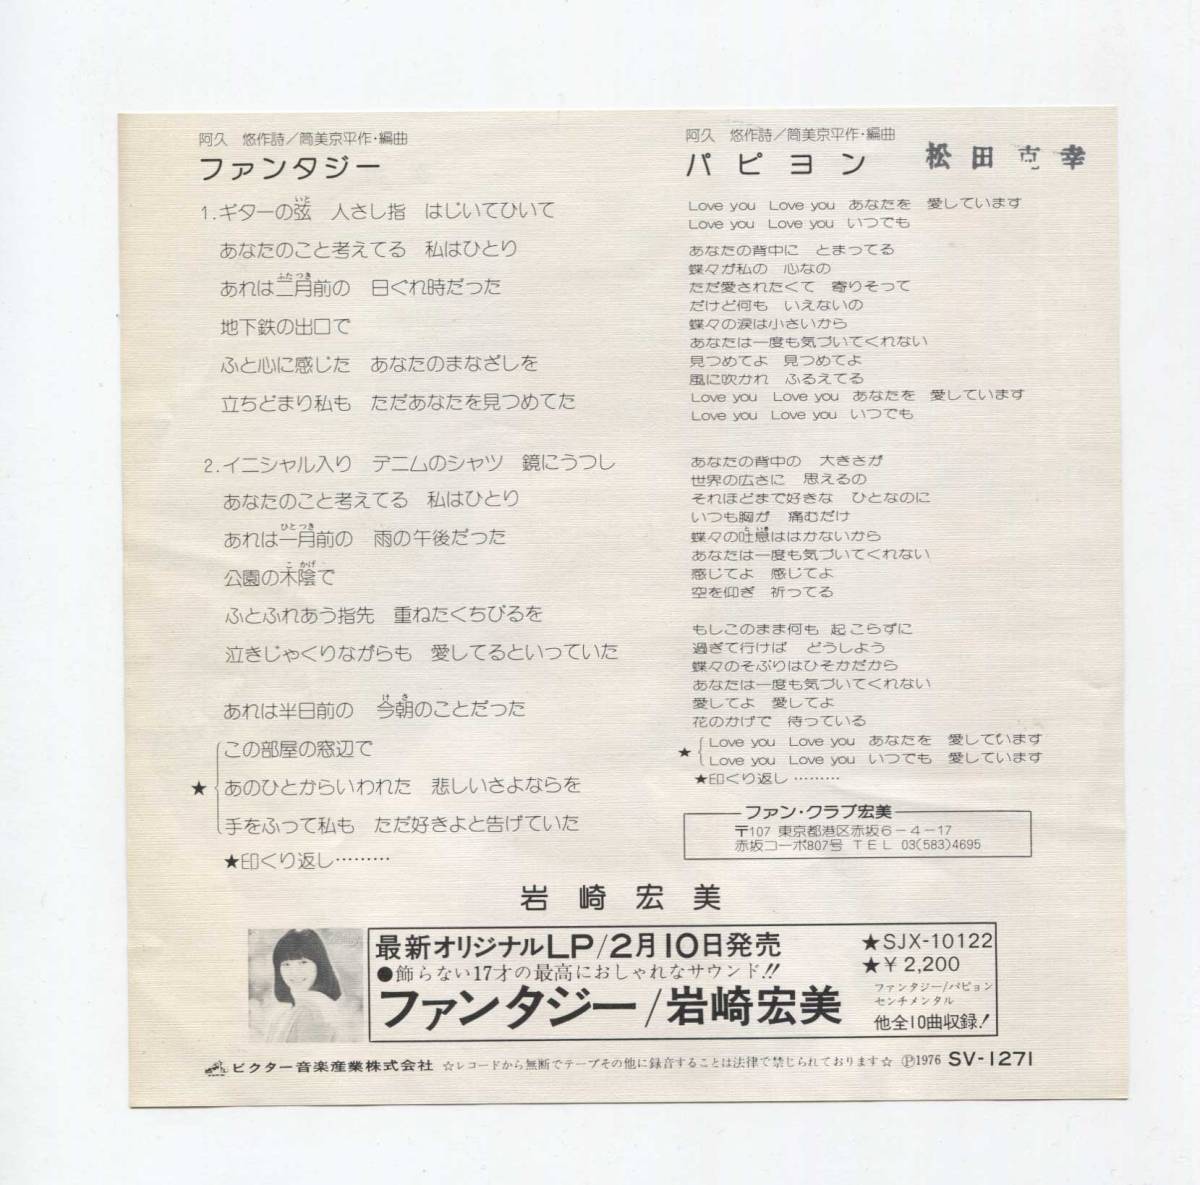 阿久 悠作詩／筒美京平作・編曲
ファンタジー
1.ギターの弦 人さし指 はじいてひいて
あなたのこと考えてる 私はひとり
あれは二月前の 日ぐれ時だった
地下鉄の出口で
ふと心に感じた あなたのまなざしを
立ちどまり私も ただあなたを見つめてた
2.イニシャル入り デニムのシャツ 鏡にうつし
あなたのこと考えてる 私はひとり
あれは一月前の 雨の午後だった
公園の木陰で
ふとふれあう指先 重ねたくちびるを
泣きじゃくりながらも 愛してるといっていた
あれは半日前の 今朝のことだった
この部屋の窓辺で
★ あのひとからいわれた 悲しいさよならを
手をふって私も ただ好きよと告げていた
★印くり返し………
阿久 悠作詩／筒美京平作・編曲
パピヨン
松田克幸
Love you Love you あなたを 愛しています
Love you Love you いつでも
あなたの背中に とまってる
蝶々が私の 心なの
ただ愛されたくて 寄りそって
だけど何も いえないの
蝶々の涙は小さいから
あなたは一度も気づいてくれない
見つめてよ 見つめてよ
風に吹かれ ふるえてる
Love you Love you あなたを 愛しています
Love you Love you いつでも
あなたの背中の 大きさが
世界の広さに 思えるの
それほどまで好きな ひとなのに
いつも胸が 痛むだけ
蝶々の吐息ははかないから
あなたは一度も気づいてくれない
感じてよ 感じてよ
空を仰ぎ 祈ってる
もしこのまま何も 起こらずに
過ぎて行けば どうしよう
蝶々のそぶりはひそかだから
あなたは一度も気づいてくれない
愛してよ 愛してよ
花のかげで 待っている
★ Love you Love you あなたを 愛しています
Love you Love you いつでも 愛しています
★印くり返し………
ファン・クラブ宏美
〒107 東京都港区赤坂6-4-17
赤坂コーポ807号 TEL 03(583)4695
岩崎宏美
最新オリジナルLP/2月10日発売
●飾らない17才の最高におしゃれなサウンド!!
ファンタジー/岩崎宏美
★SJX-10122
★￥2,200
ファンタジー/パピヨン
センチメンタル
他全10曲収録!
ビクター音楽産業株式会社 ☆レコードから無断でテープその他に録音することは法律で禁じられております☆ Ⓟ1976 SV-1271